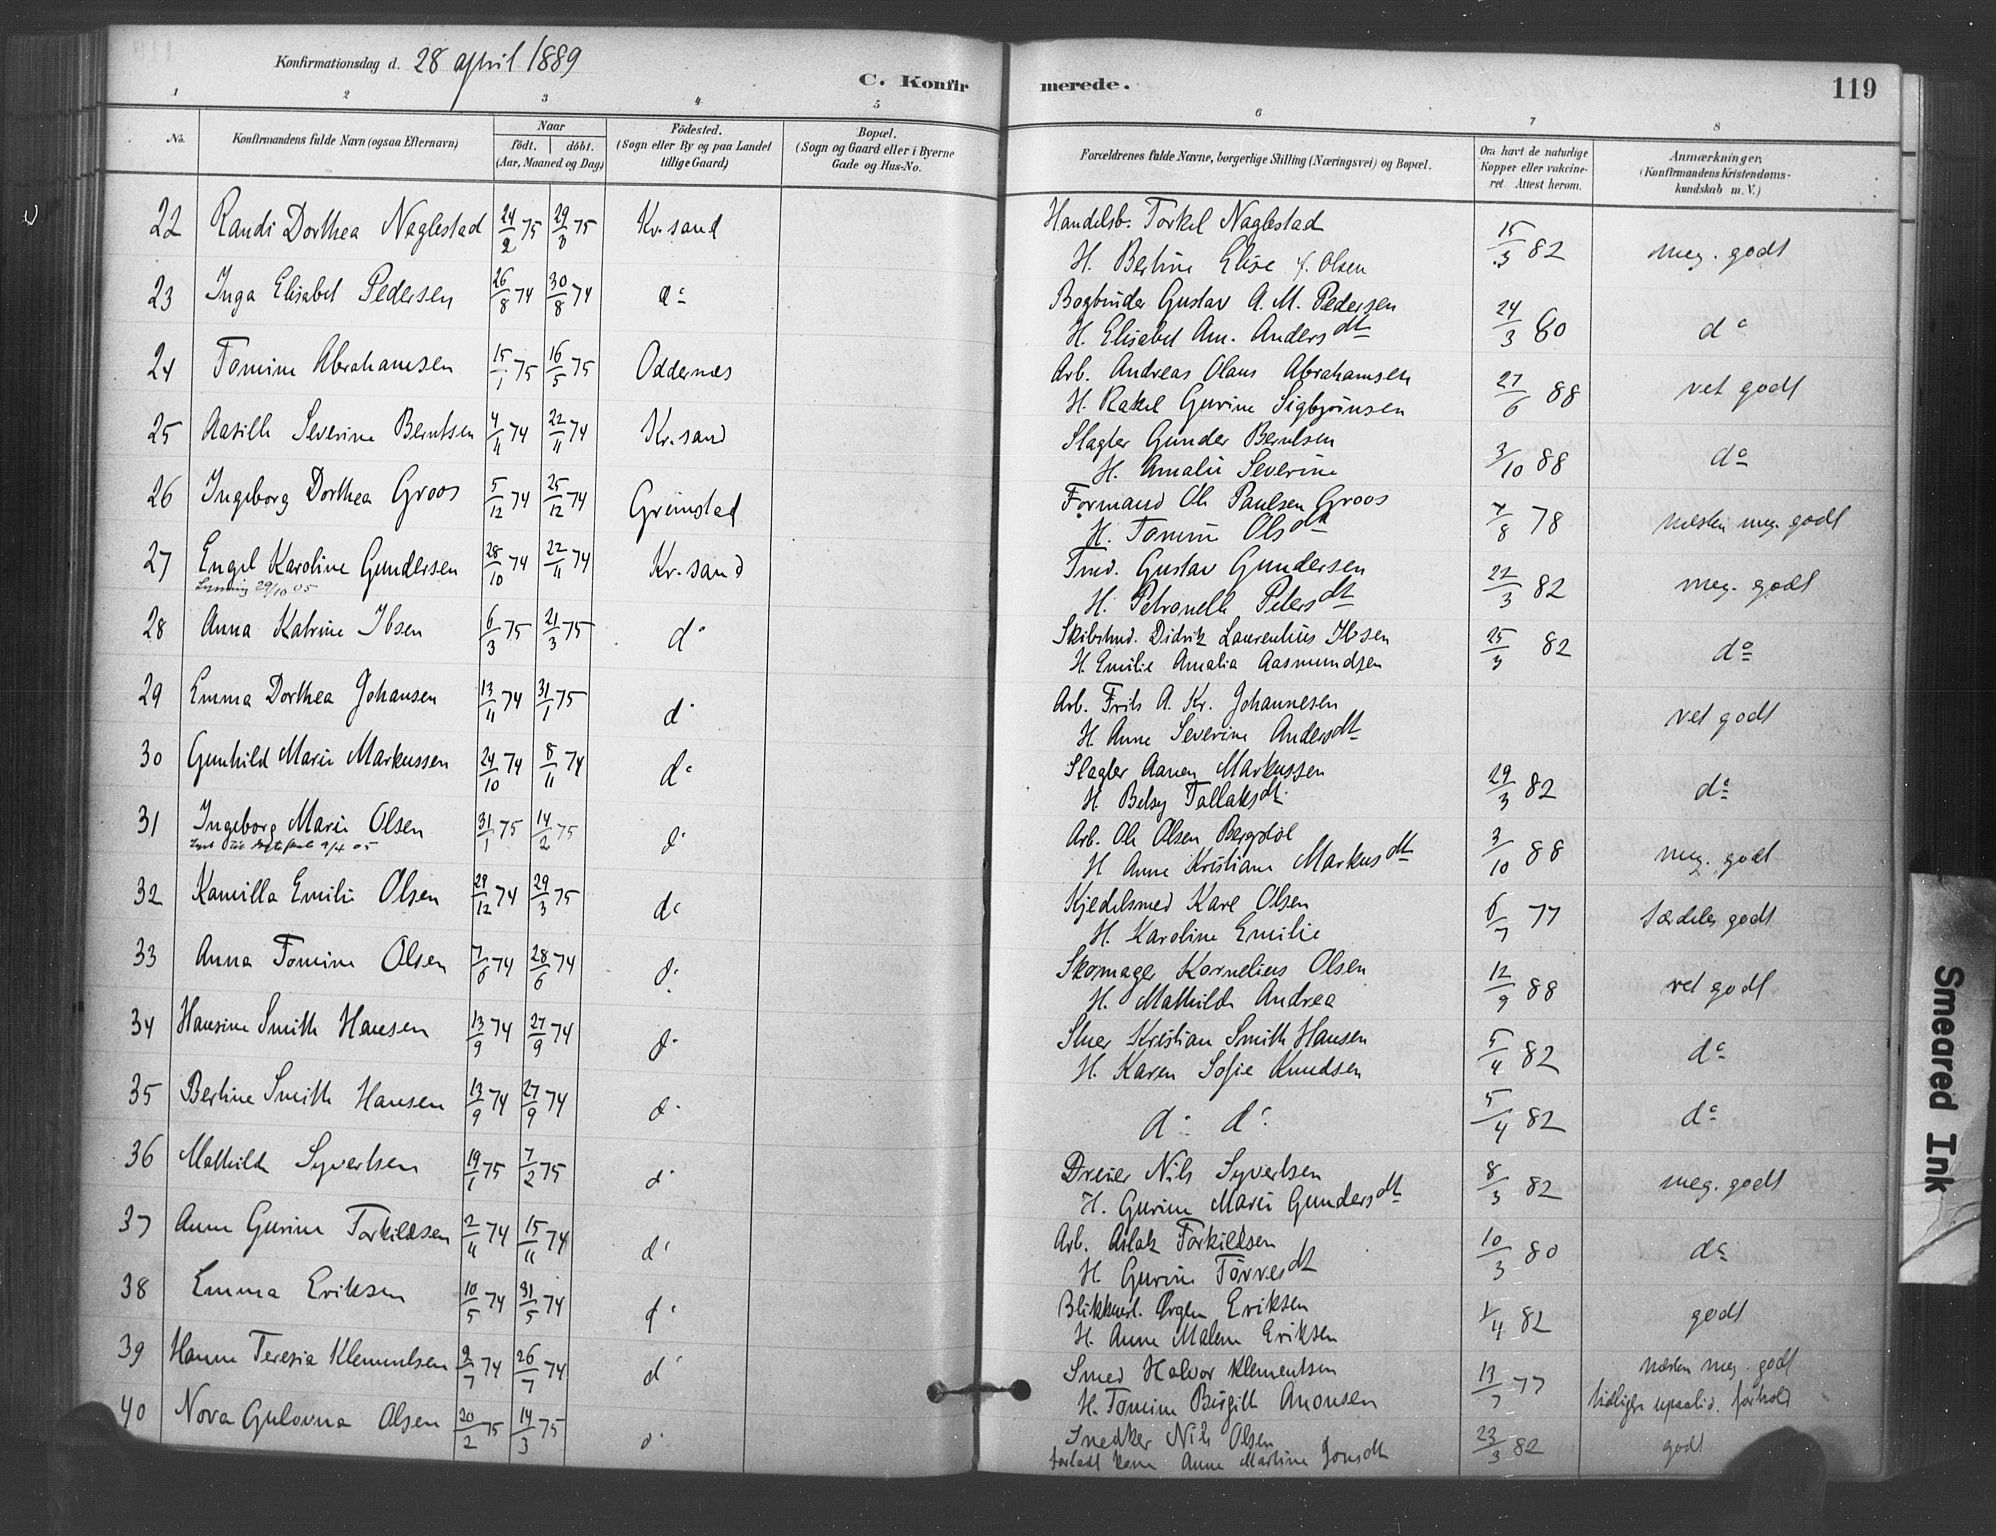 Konfirmationsdag d. 28 april 1889
C. Konfirmerede.
119
1 2 3 4 5 6 7 8
No.
Konfirmandens fulde Navn (ogsaa Efternavn)
Naar
födt. döbt.
(Aar, Maaned og Dag)
Födested.
(Sogn eller By og paa Landet
tillige Gaard)
Bopæl.
(Sogn og Gaard eller i Byerne
Gade og Hus-No.
Forældrenes fulde Navne, borgerlige Stilling (Næringsvei) og Bopæl.
Om havt de naturlige
Kopper eller vakcine-
ret Attest herom.
Anmærkninger.
(Konfirmandens Kristendoms-
kundskab m. V.)
22 Randi Dorthea Naglestad 24/2 75 29/3 75 Kr.sand Handelsb. Torkel Naglestad 15/3 82 meg. godt
H. Bertine Elise f. Olsen
23 Inga Elisabet Pedersen 26/8 74 30/8 74 do Bogbinder Gustav A. M. Pedersen 24/3 80 do
H. Elisabet Am. Andersdt
24 Tomine Abrahamsen 15/1 75 16/5 75 Oddernes Arb. Andreas Olaus Abrahamsen 27/6 88 vet godt
H. Rakel Gurine Sigbjörnsen
25 Aasille Severine Berntsen 4/11 74 22/11 74 Kr.sand Slagter Gunder Berntsen 3/10 88 do
H. Amalie Severine
26 Ingeborg Dorthea Groos 5/12 74 25/12 74 Grimstad Formand Ole Paulsen Groos 7/8 78 næsten meg. godt
H. Tomine Olsdt
27 Engel Karoline Gundersen 28/10 74 22/11 74 Kr.sand Tmd. Gustav Gundersen 22/3 82 meg. godt
Lysning 29/10 05
H. Petronelle Petersdt
28 Anna Katrine Ibsen 6/3 75 21/3 75 do Skibstmd. Didrik Laurentius Ibsen 25/3 82 do
H Emilie Amalia Aasmundsen
29 Emma Dorthea Johansen 13/11 74 31/1 75 do Arb. Frits A. Kr. Johannesen vet godt
H Anne Severine Andersdt
30 Gunhild Marie Markussen 24/10 74 8/11 74 do Slagter Aanen Markussen 29/3 82 do
H. Betsy Tallaksdt
31 Ingeborg Marie Olsen 31/1 75 14/2 75 do Arb. Ole Olsen Bergstöl 3/10 88 meg. godt
9/4 05
H Anne Kristiane Markusdt
32 Kamilla Emilie Olsen 29/12 74 29/3 75 do Kjedelsmed Kare Olsen 6/7 77 særdeles godt
H. Karoline Emilie
33 Anna Tomine Olsen 7/6 74 28/6 74 do Skomager Kornelius Olsen 12/9 88 vet godt
H. Mathilde Andrea
34 Hansine Smith Hansen 13/9 74 27/9 74 do Stuer Kristian Smith Hansen 5/4 82 do
H. Karen Sofie Knudsen
35 Bertine Smith Hansen 13/9 74 27/9 74 do do do 5/4 82 do
36 Mathilde Syvertsen 19/1 75 7/2 75 do Dreier Nils Syvertsen 8/3 82 meg. godt
H. Gurine Marie Gundersdt
37 Anne Gurine Torkildsen 2/11 74 15/11 74 do Arb. Aslak Torkildsen 10/3 80 do
H. Gurine Törresdt
38 Emma Eriksen 10/5 74 31/5 74 do Blikkensl. Örgen Eriksen 1/4 82 godt
H. Anne Malene Eriksen
39 Hanne Teresia Klemmetsen 9/7 74 26/7 74 do Smed Halvor Klementsen 13/7 77 næsten meg. godt
H. Tomine Birgitte Anonsen tidligere upaalid. forhold
40 Nova Gulovna Olsen 20/2 75 14/3 75 do Snedker Nils Olsen 23/3 82 godt
forladt kone Anne Martine Jonsdt
Smeared Ink